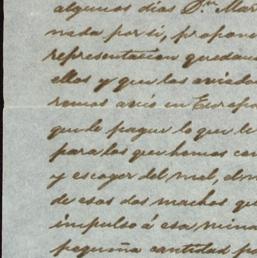 algunos dias Dn. Mar
nada por si, propone
representacion quedand
ellos y que los aviado
remos avio en Europa
que le pague lo que le
para los que hemos con
y escoger del mal, el m
de esos dos machos qu
impulso á esa mina
pequeña cantidad po